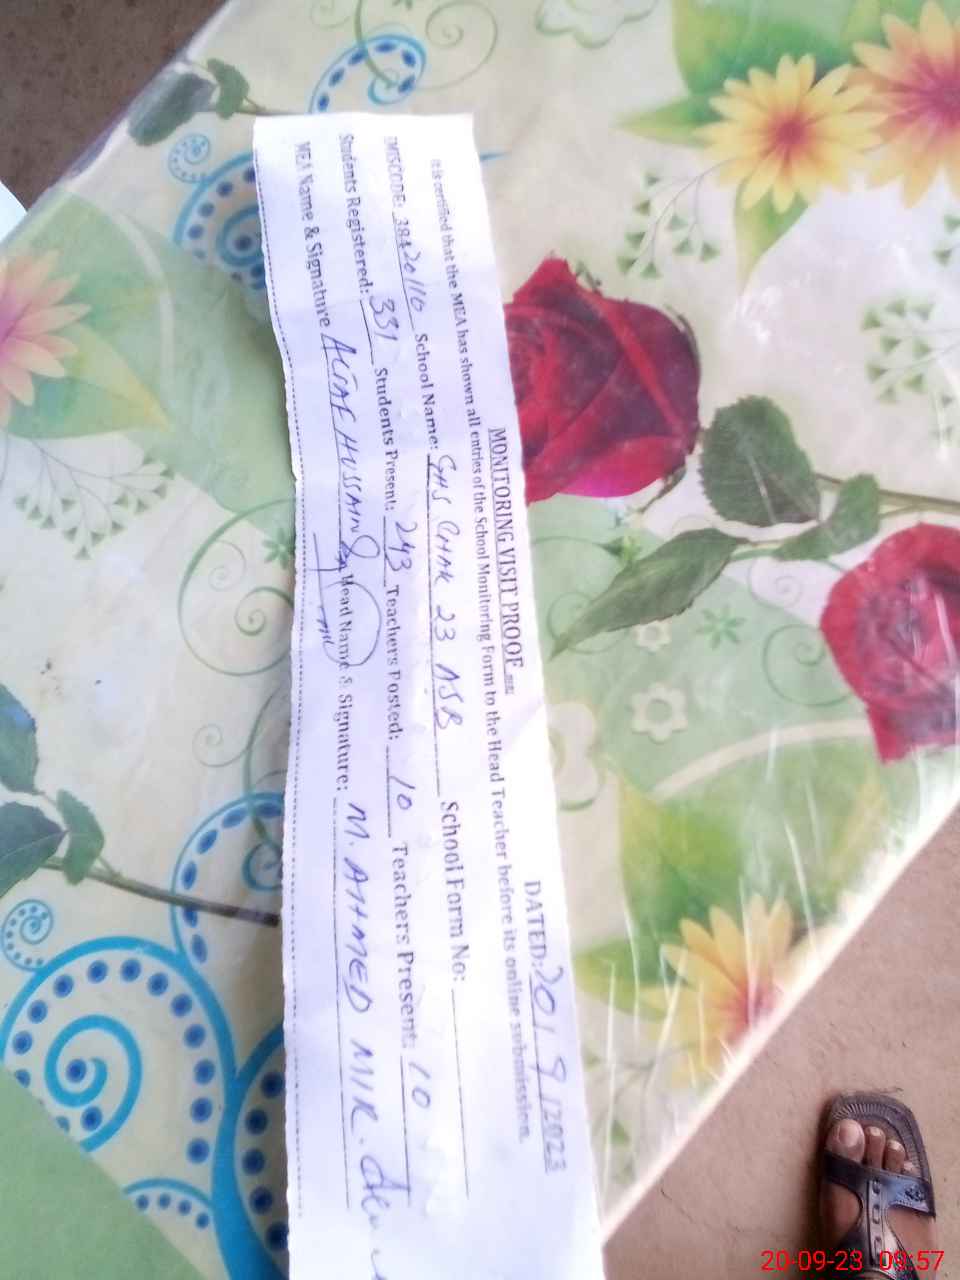 MONITORING VISIT PROOF DATED: 20/9/2023
It is certified that the MEA has shown all entries of the School Monitoring Form to the Head Teacher before its online submission.
EMISCODE: 38420116 School Name: GHS CHAK 23 NSB School Form No:
Students Registered: 331 Students Present: 243 Teachers Posted: 10 Teachers Present: 10
MEA Name & Signature ALTAF HUSSAIN Head Name & Signature: M. AHMED MIR.
20-09-23 09:57